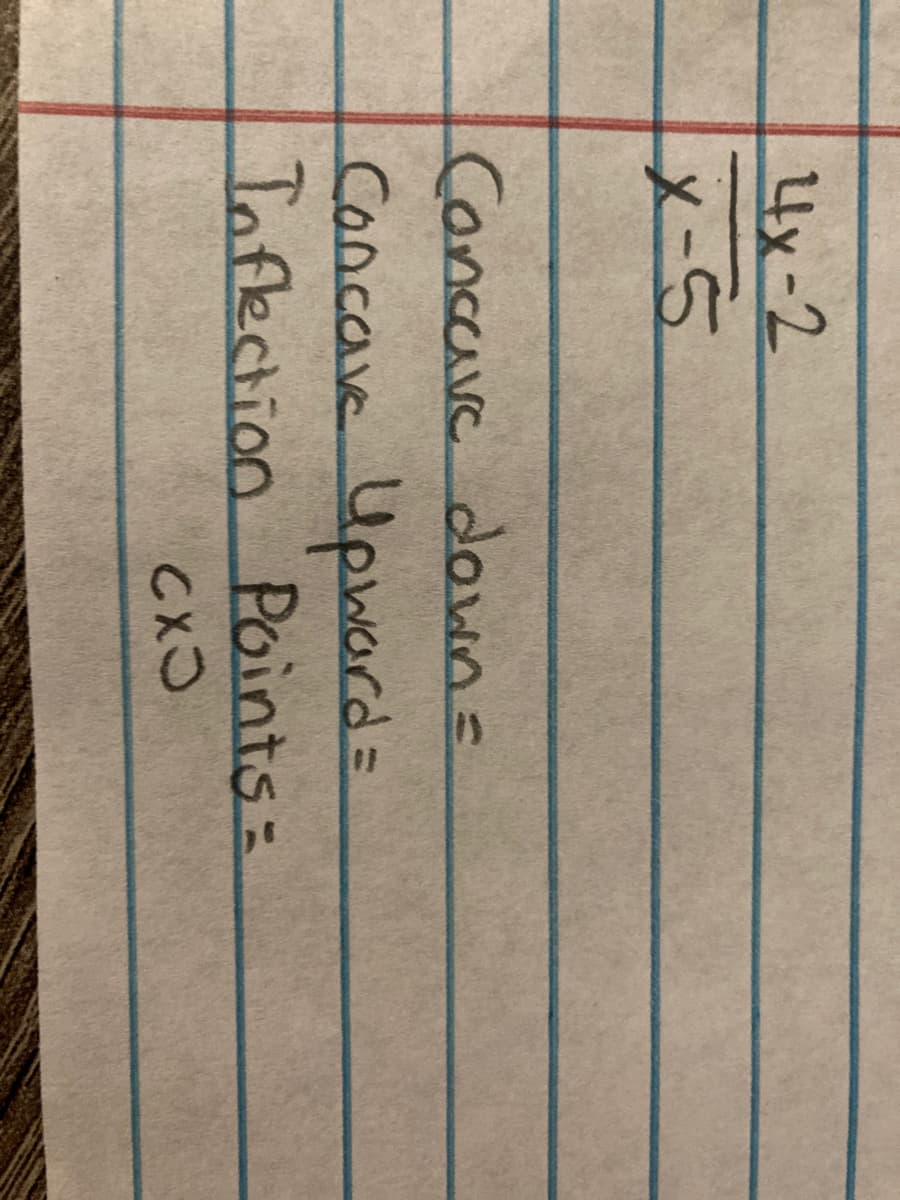 4x-2
x-5
Concave down=
Concave Upward=
Inflection Points=
cx)